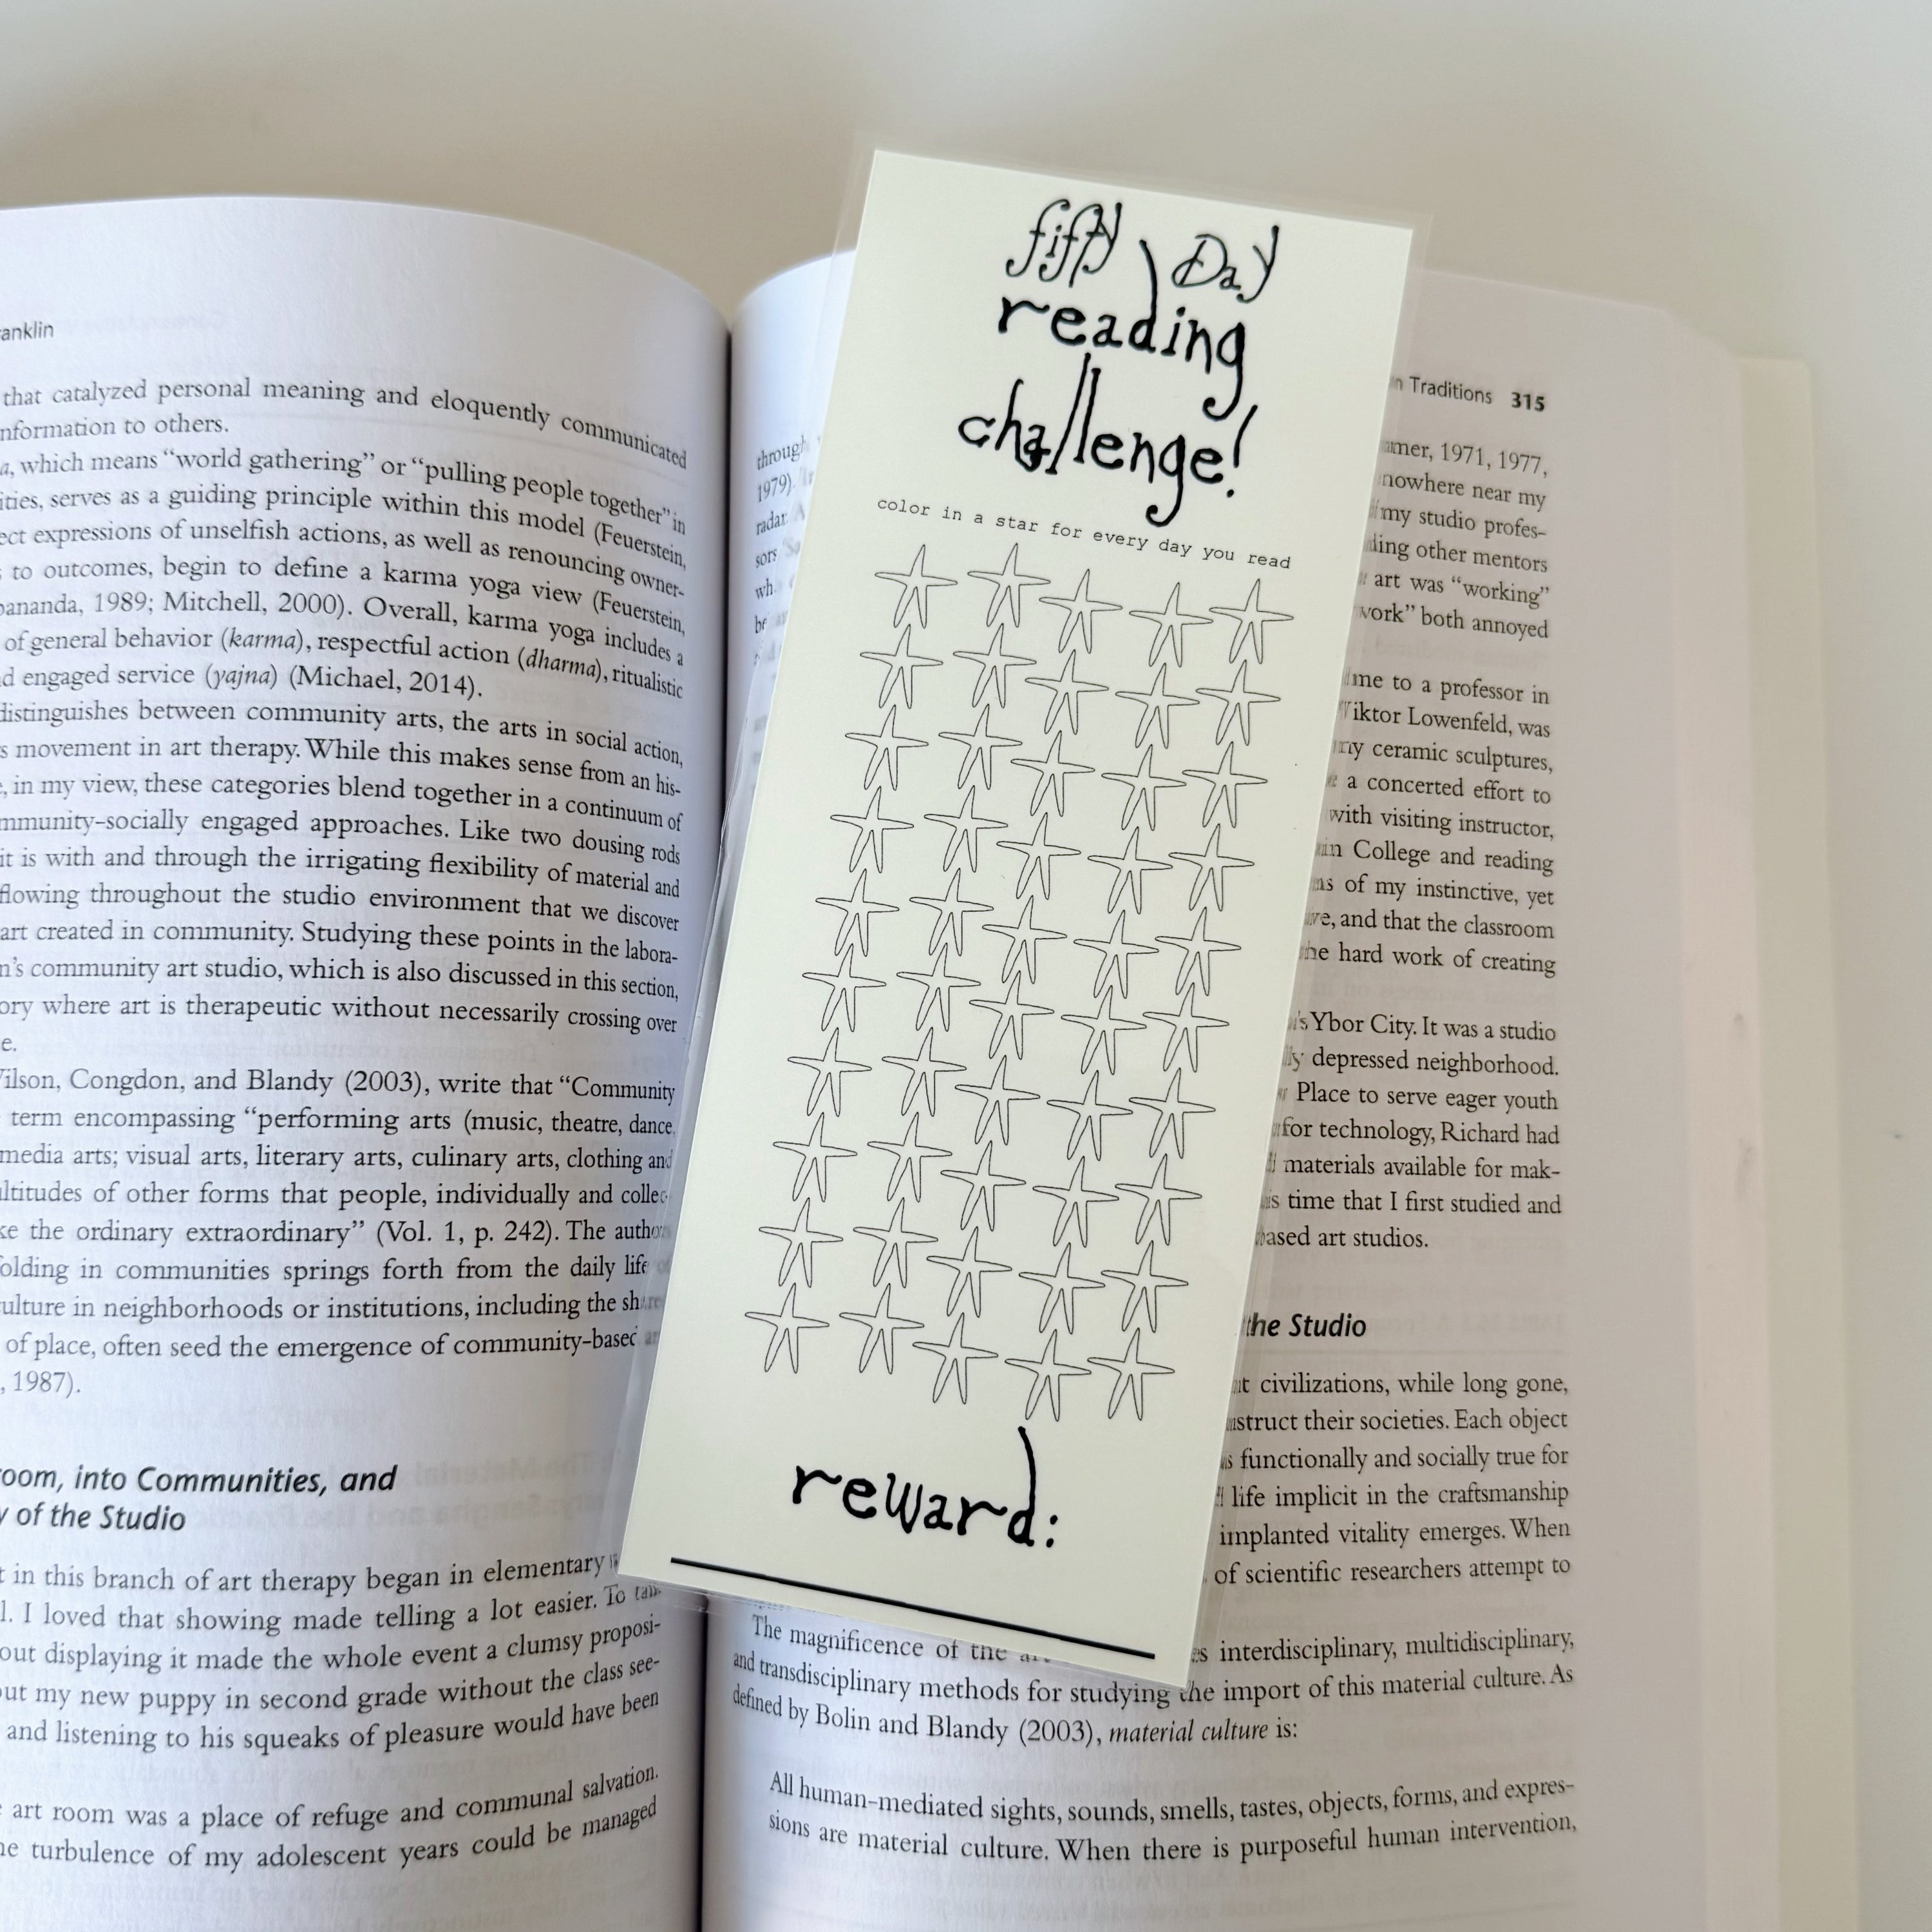 anklin
that catalyzed personal meaning and eloquently communicated
nformation to others.
a, which means “world gathering” or “pulling people together” in
ities, serves as a guiding principle within this model (Feuerstein,
ect expressions of unselfish actions, as well as renouncing owner-
s to outcomes, begin to define a karma yoga view (Feuerstein,
ananda, 1989; Mitchell, 2000). Overall, karma yoga includes a
of general behavior (karma), respectful action (dharma), ritualistic
d engaged service (yajna) (Michael, 2014).
distinguishes between community arts, the arts in social action,
s movement in art therapy. While this makes sense from an his-
, in my view, these categories blend together in a continuum of
mmunity-socially engaged approaches. Like two dousing rods
it is with and through the irrigating flexibility of material and
flowing throughout the studio environment that we discover
art created in community. Studying these points in the labora-
n’s community art studio, which is also discussed in this section,
ory where art is therapeutic without necessarily crossing over
e.
Wilson, Congdon, and Blandy (2003), write that “Community
term encompassing “performing arts (music, theatre, dance,
media arts; visual arts, literary arts, culinary arts, clothing and
ultitudes of other forms that people, individually and collec-
ke the ordinary extraordinary” (Vol. 1, p. 242). The autho
olding in communities springs forth from the daily life
ulture in neighborhoods or institutions, including the share
of place, often seed the emergence of community-based
, 1987).
oom, into Communities, and
y of the Studio
t in this branch of art therapy began in elementary
l. I loved that showing made telling a lot easier. To talk
out displaying it made the whole event a clumsy proposi-
out my new puppy in second grade without the class see-
and listening to his squeaks of pleasure would have been
art room was a place of refuge and communal salvation.
ne turbulence of my adolescent years could be managed
fifty Day
reading
challenge!
color in a star for every day you read
reward:
n Traditions 315
through
1979).
radar.
sors
amer, 1971, 1977,
nowhere near my
my studio profes-
ding other mentors
art was “working”
work” both annoyed
me to a professor in
Viktor Lowenfeld, was
my ceramic sculptures,
a concerted effort to
with visiting instructor,
in College and reading
ns of my instinctive, yet
ve, and that the classroom
he hard work of creating
’s Ybor City. It was a studio
ly depressed neighborhood.
Place to serve eager youth
for technology, Richard had
materials available for mak-
is time that I first studied and
based art studios.
the Studio
nt civilizations, while long gone,
nstruct their societies. Each object
s functionally and socially true for
life implicit in the craftsmanship
implanted vitality emerges. When
of scientific researchers attempt to
The magnificence of the es interdisciplinary, multidisciplinary,
and transdisciplinary methods for studying the import of this material culture. As
defined by Bolin and Blandy (2003), material culture is:
All human-mediated sights, sounds, smells, tastes, objects, forms, and expres-
sions are material culture. When there is purposeful human intervention,